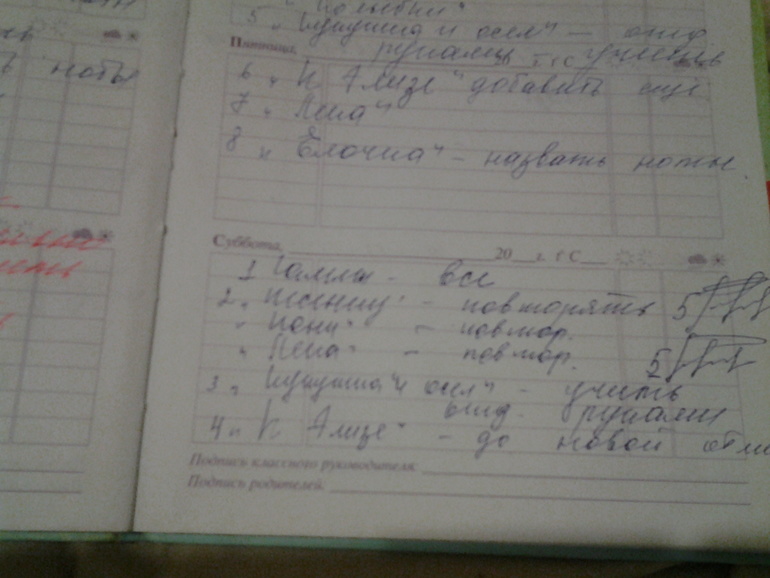 "Колыбки"
5 "Кукушка и осел" — отд
руками учить
Пятница, 20 г. t C
6 "К Элизе" добавить ещё
7 "Лена"
8 "Ёлочка" - назвать ноты.
ноты
Суббота, 20 г. t C
1 Гаммы - все
2. - повторять 5
" Пони" - повтор.
" Лена" - повтор. 5
3 "Кукушка и осел" - учить
отд. руками
4 "К Элизе" - до новой
Подпись классного руководителя:
Подпись родителей